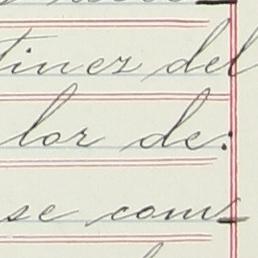 tinez del
lor de:
se com-